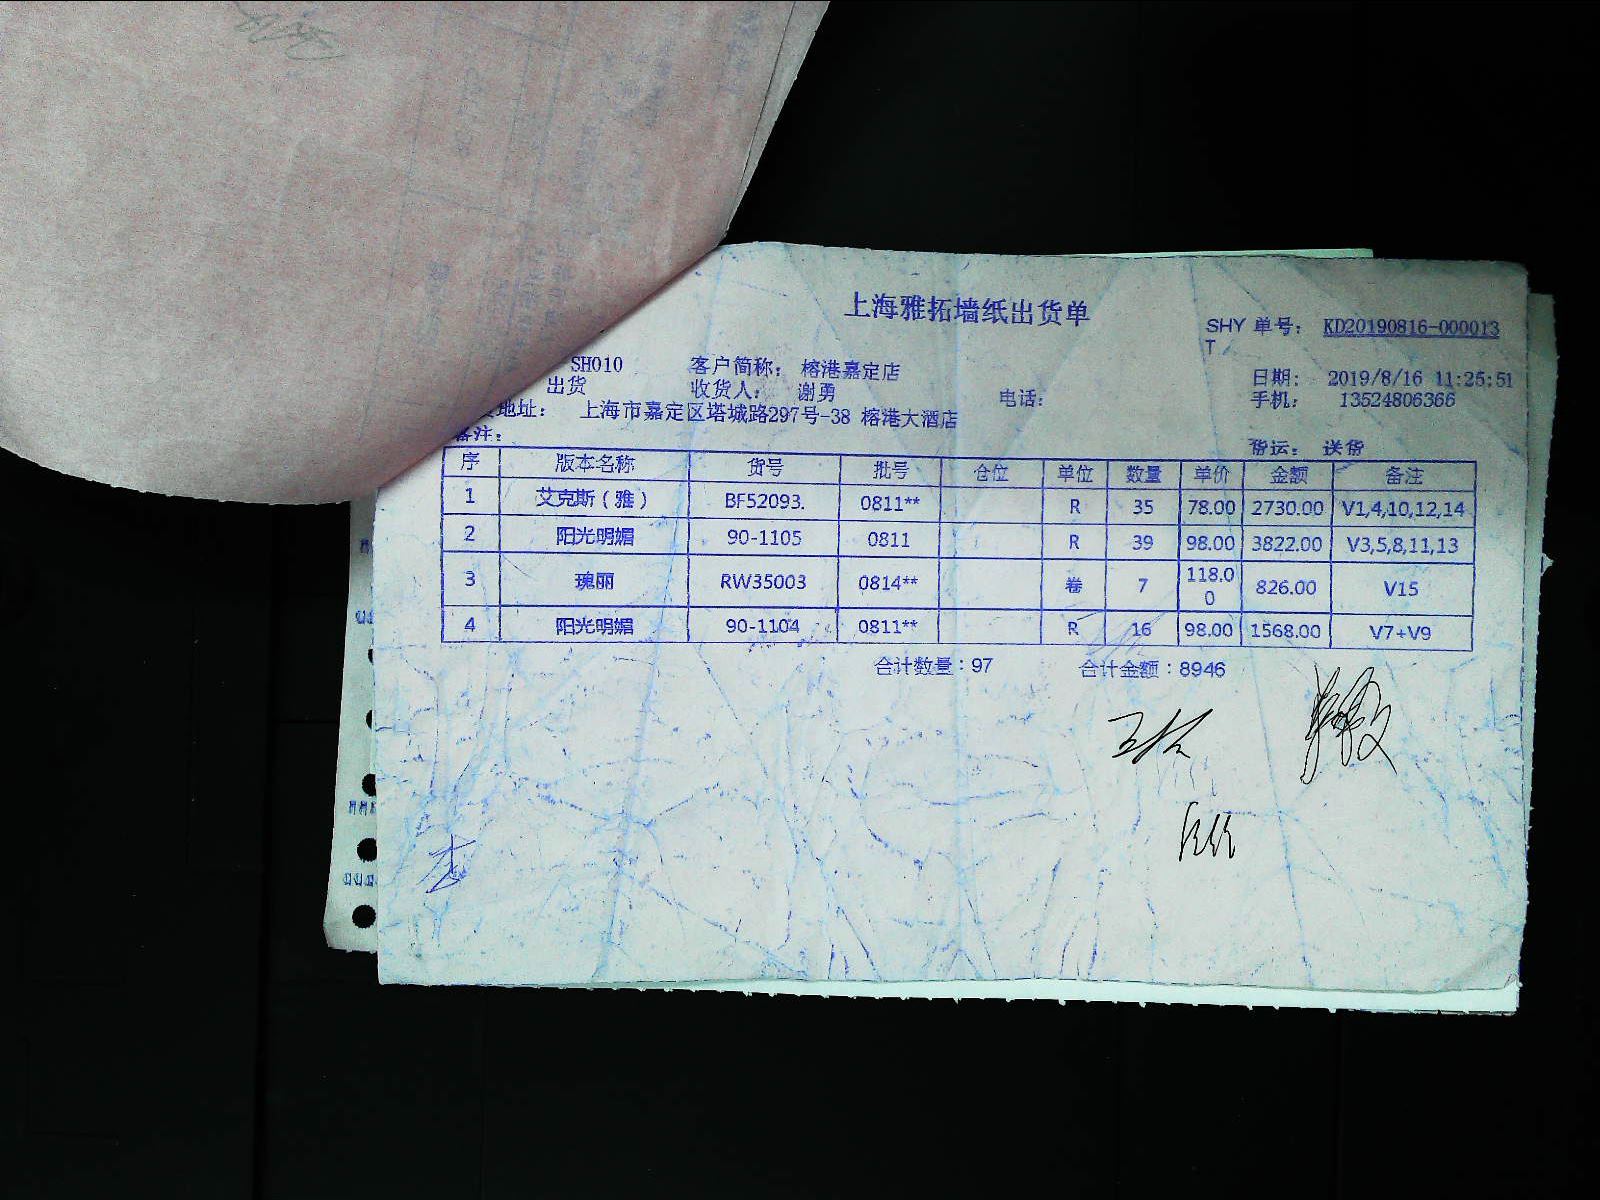 上海雅拓墙纸出货单
SHY 单号： KD20190816-000013
T
SH010 客户简称： 榕港嘉定店 日期： 2019/8/16 11:25:51
出货 收货人： 谢勇 电话： 手机： 13524806366
地址： 上海市嘉定区塔城路297号-38 榕港大酒店
备注： 货运： 送货
序 版本名称 货号 批号 仓位 单位 数量 单价 金额 备注
1 艾克斯（雅） BF52093. 0811** R 35 78.00 2730.00 V1,4,10,12,14
2 阳光明媚 90-1105 0811 R 39 98.00 3822.00 V3,5,8,11,13
3 瑰丽 RW35003 0814** 卷 7 118.00 826.00 V15
4 阳光明媚 90-1104 0811** R 16 98.00 1568.00 V7+V9
合计数量：97 合计金额：8946